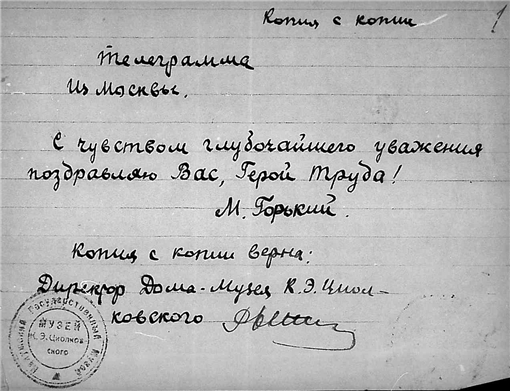 Копия с копии
1
Телеграмма
Из Москвы.
С чувством глубочайшего уважения
поздравляю Вас, Герой Труда!
М. Горький.
Копия с копии верна:
Директор Дома-Музея К.Э.Циол-
ковского
Государственный Музей
МУЗЕЙ
К.Э.Циолков
ского